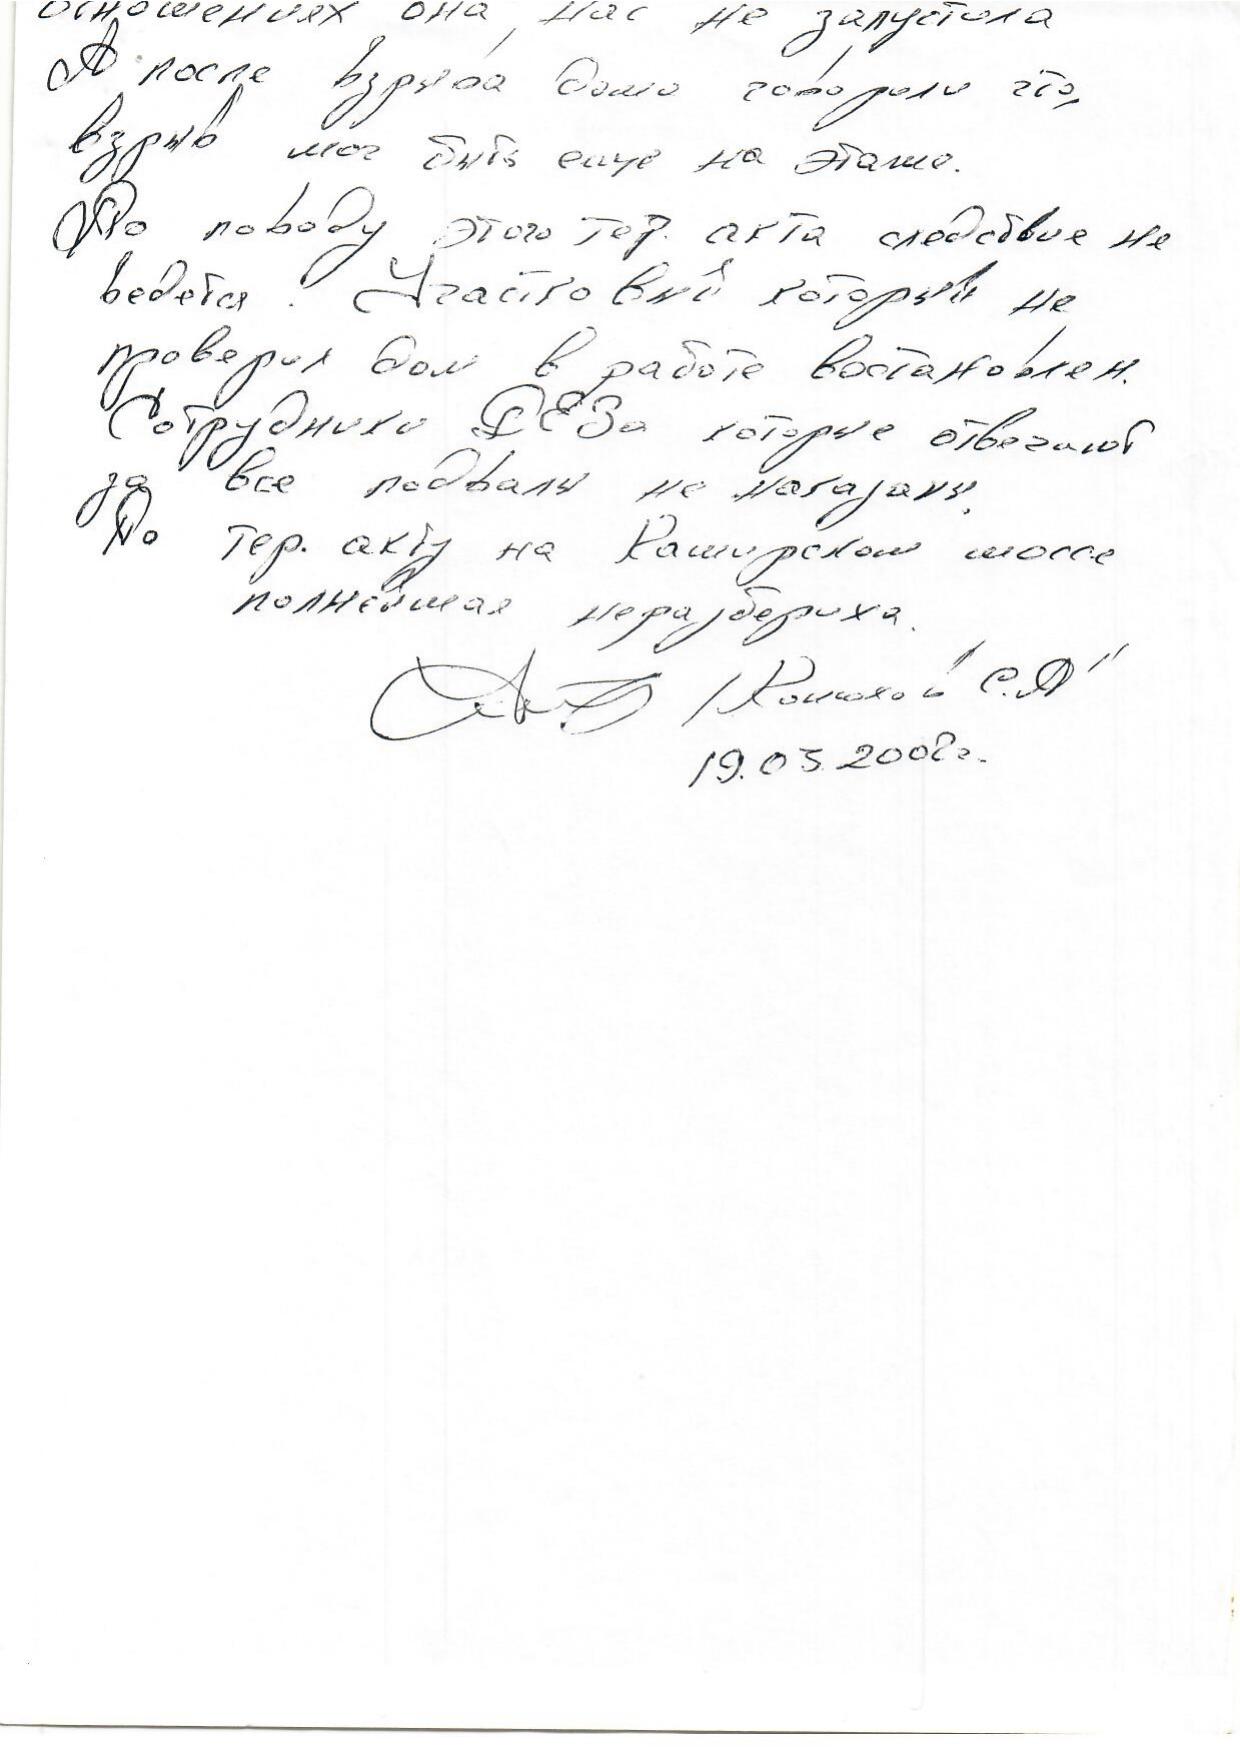 отношениях она нас не запустила
А после взрыва дома говорили что,
взрыв мог быть еще на этаже.
По поводу этого тер. акта следствие не
ведется. Участковый который не
проверил дом в работе востановлен.
Сотрудники ДЕЗа которые отвечают
за все подвалы не наказаны.
По тер. акту на Каширском шоссе
полнейшая неразбериха.
С.А
19.03.2002г.